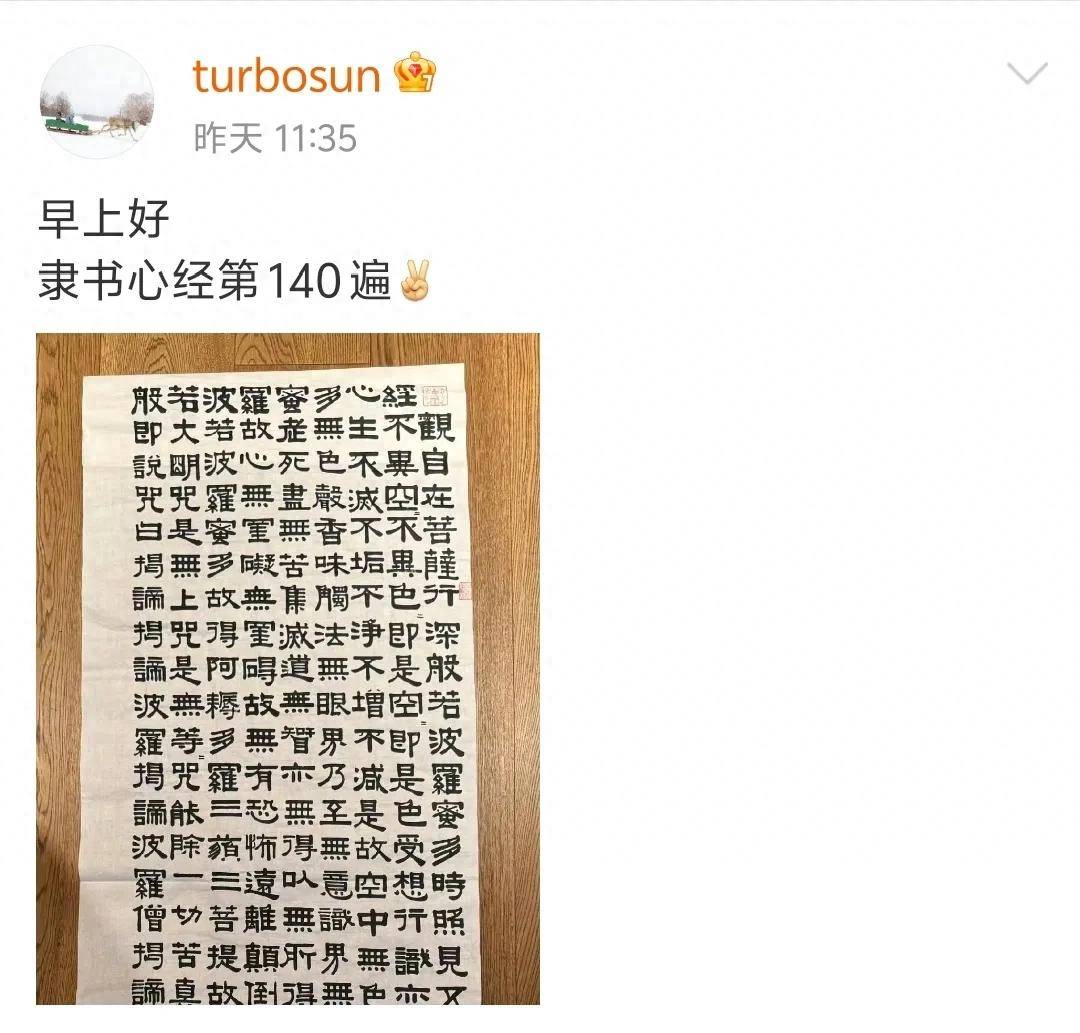 turbosun
昨天 11:35
早上好
隶书心经第140遍✌
般若波羅蜜多心經
觀自在菩薩行深般若波羅蜜多時照見
不異空=不異色=即是空=即是色受想行識亦
生不滅不垢不淨不增不減是故空中無色
無色聲香味觸法無眼界乃至無意識界無
老死盡無苦集滅道無智亦無得以無所得
故心無罣礙無罣碍故無有恐怖遠離顛倒
若波羅蜜多故得阿耨多羅三藐三菩提故
大明咒是無上咒是無等=咒能除一切苦真
即說咒曰揭諦揭諦波羅揭諦波羅僧揭諦